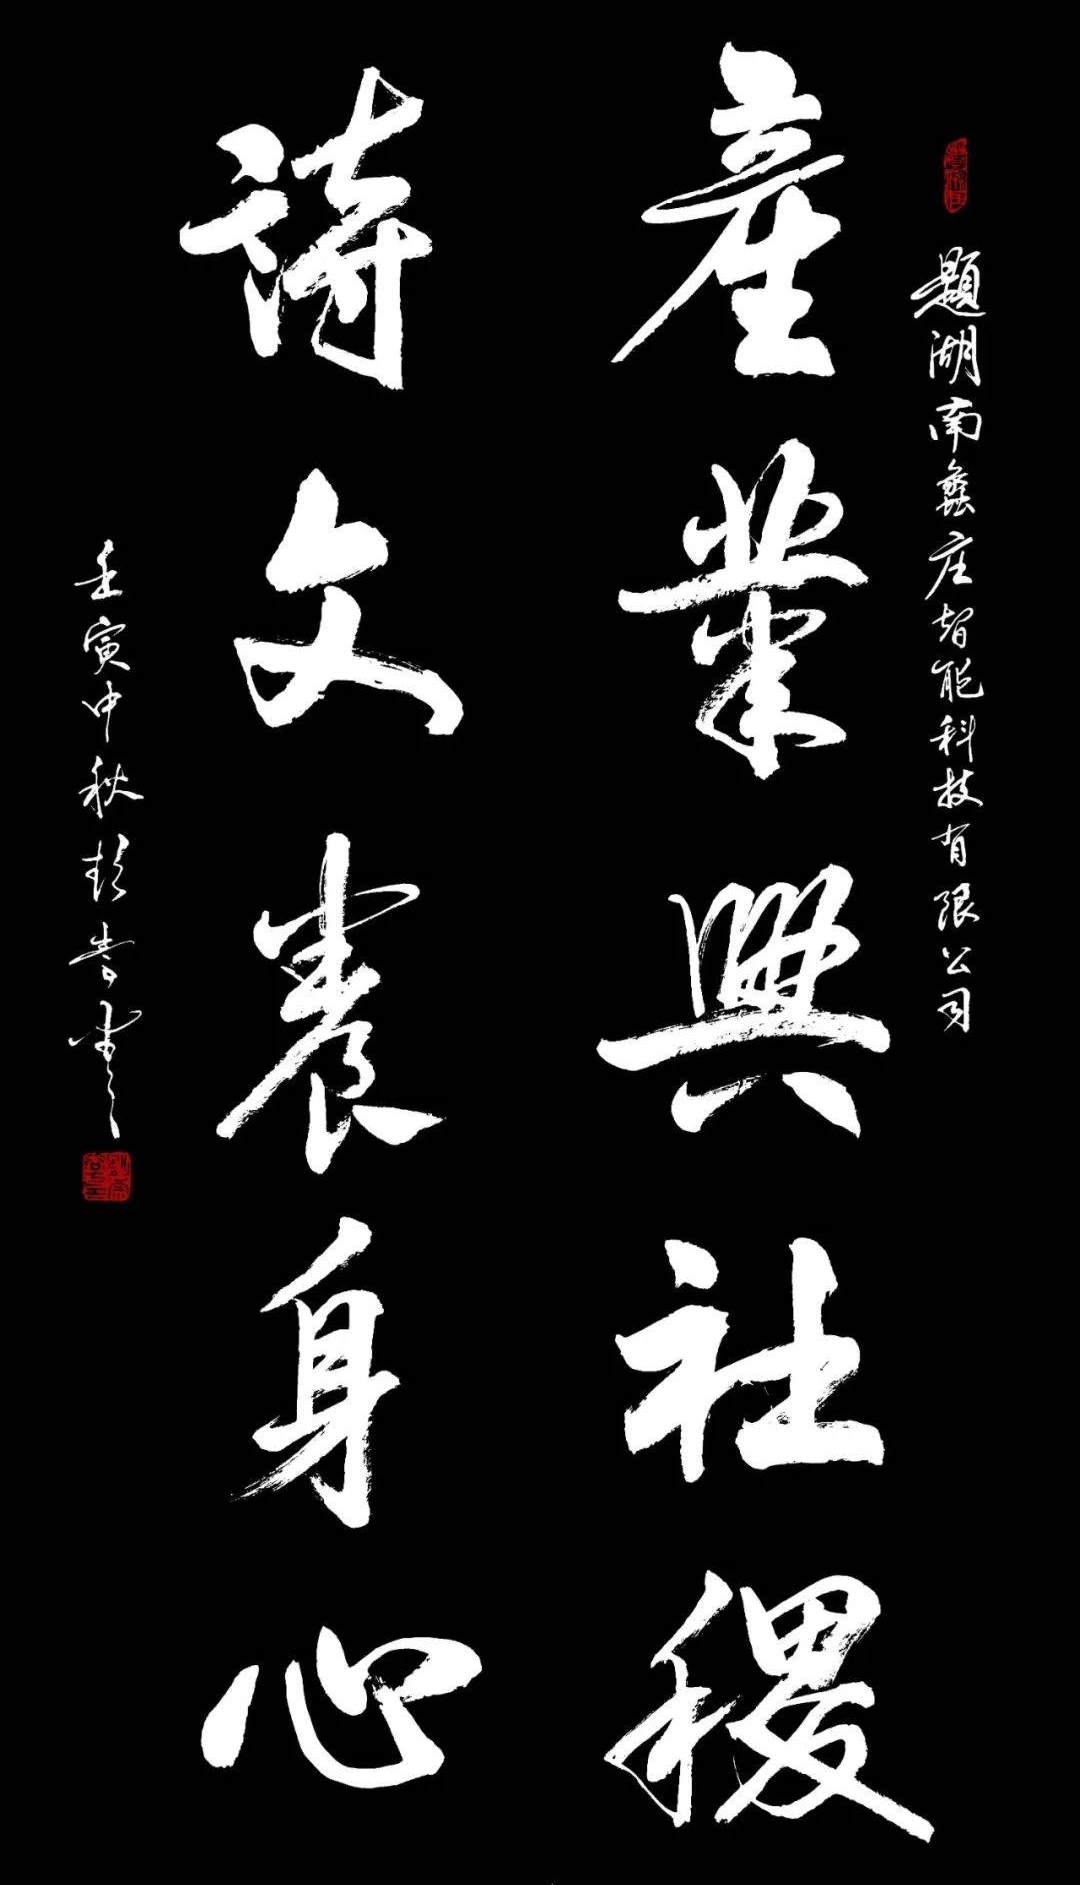 題湖南蠡庄智能科技有限公司
產業興社稷
詩文養身心
壬寅中秋